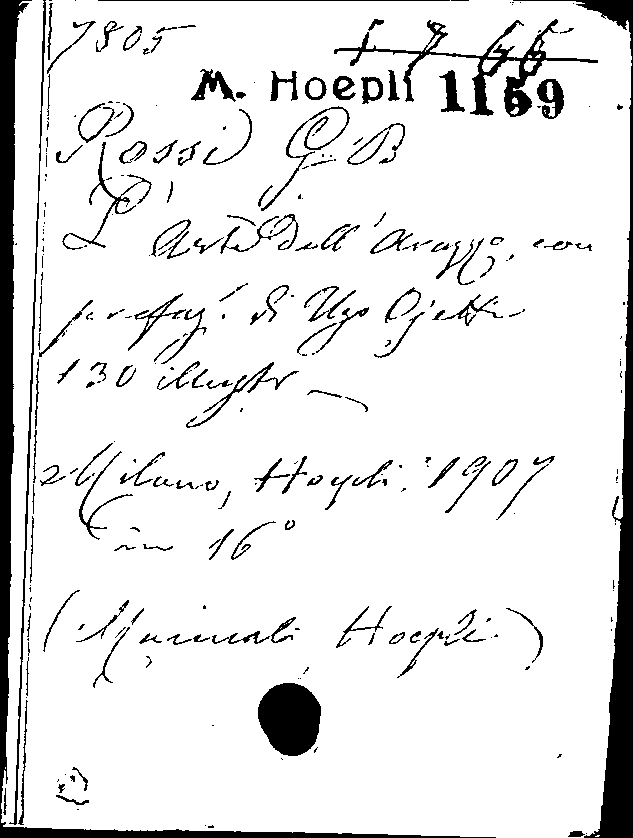 7805
1 7 66
M. Hoepli 1159
Rossi G. B
L' Arte Dell' Arazzo, con
prefaz. di Ugo Ojetti
130 illustr
Milano, Hoepli. 1907
in 16°
(Manuali Hoepli)